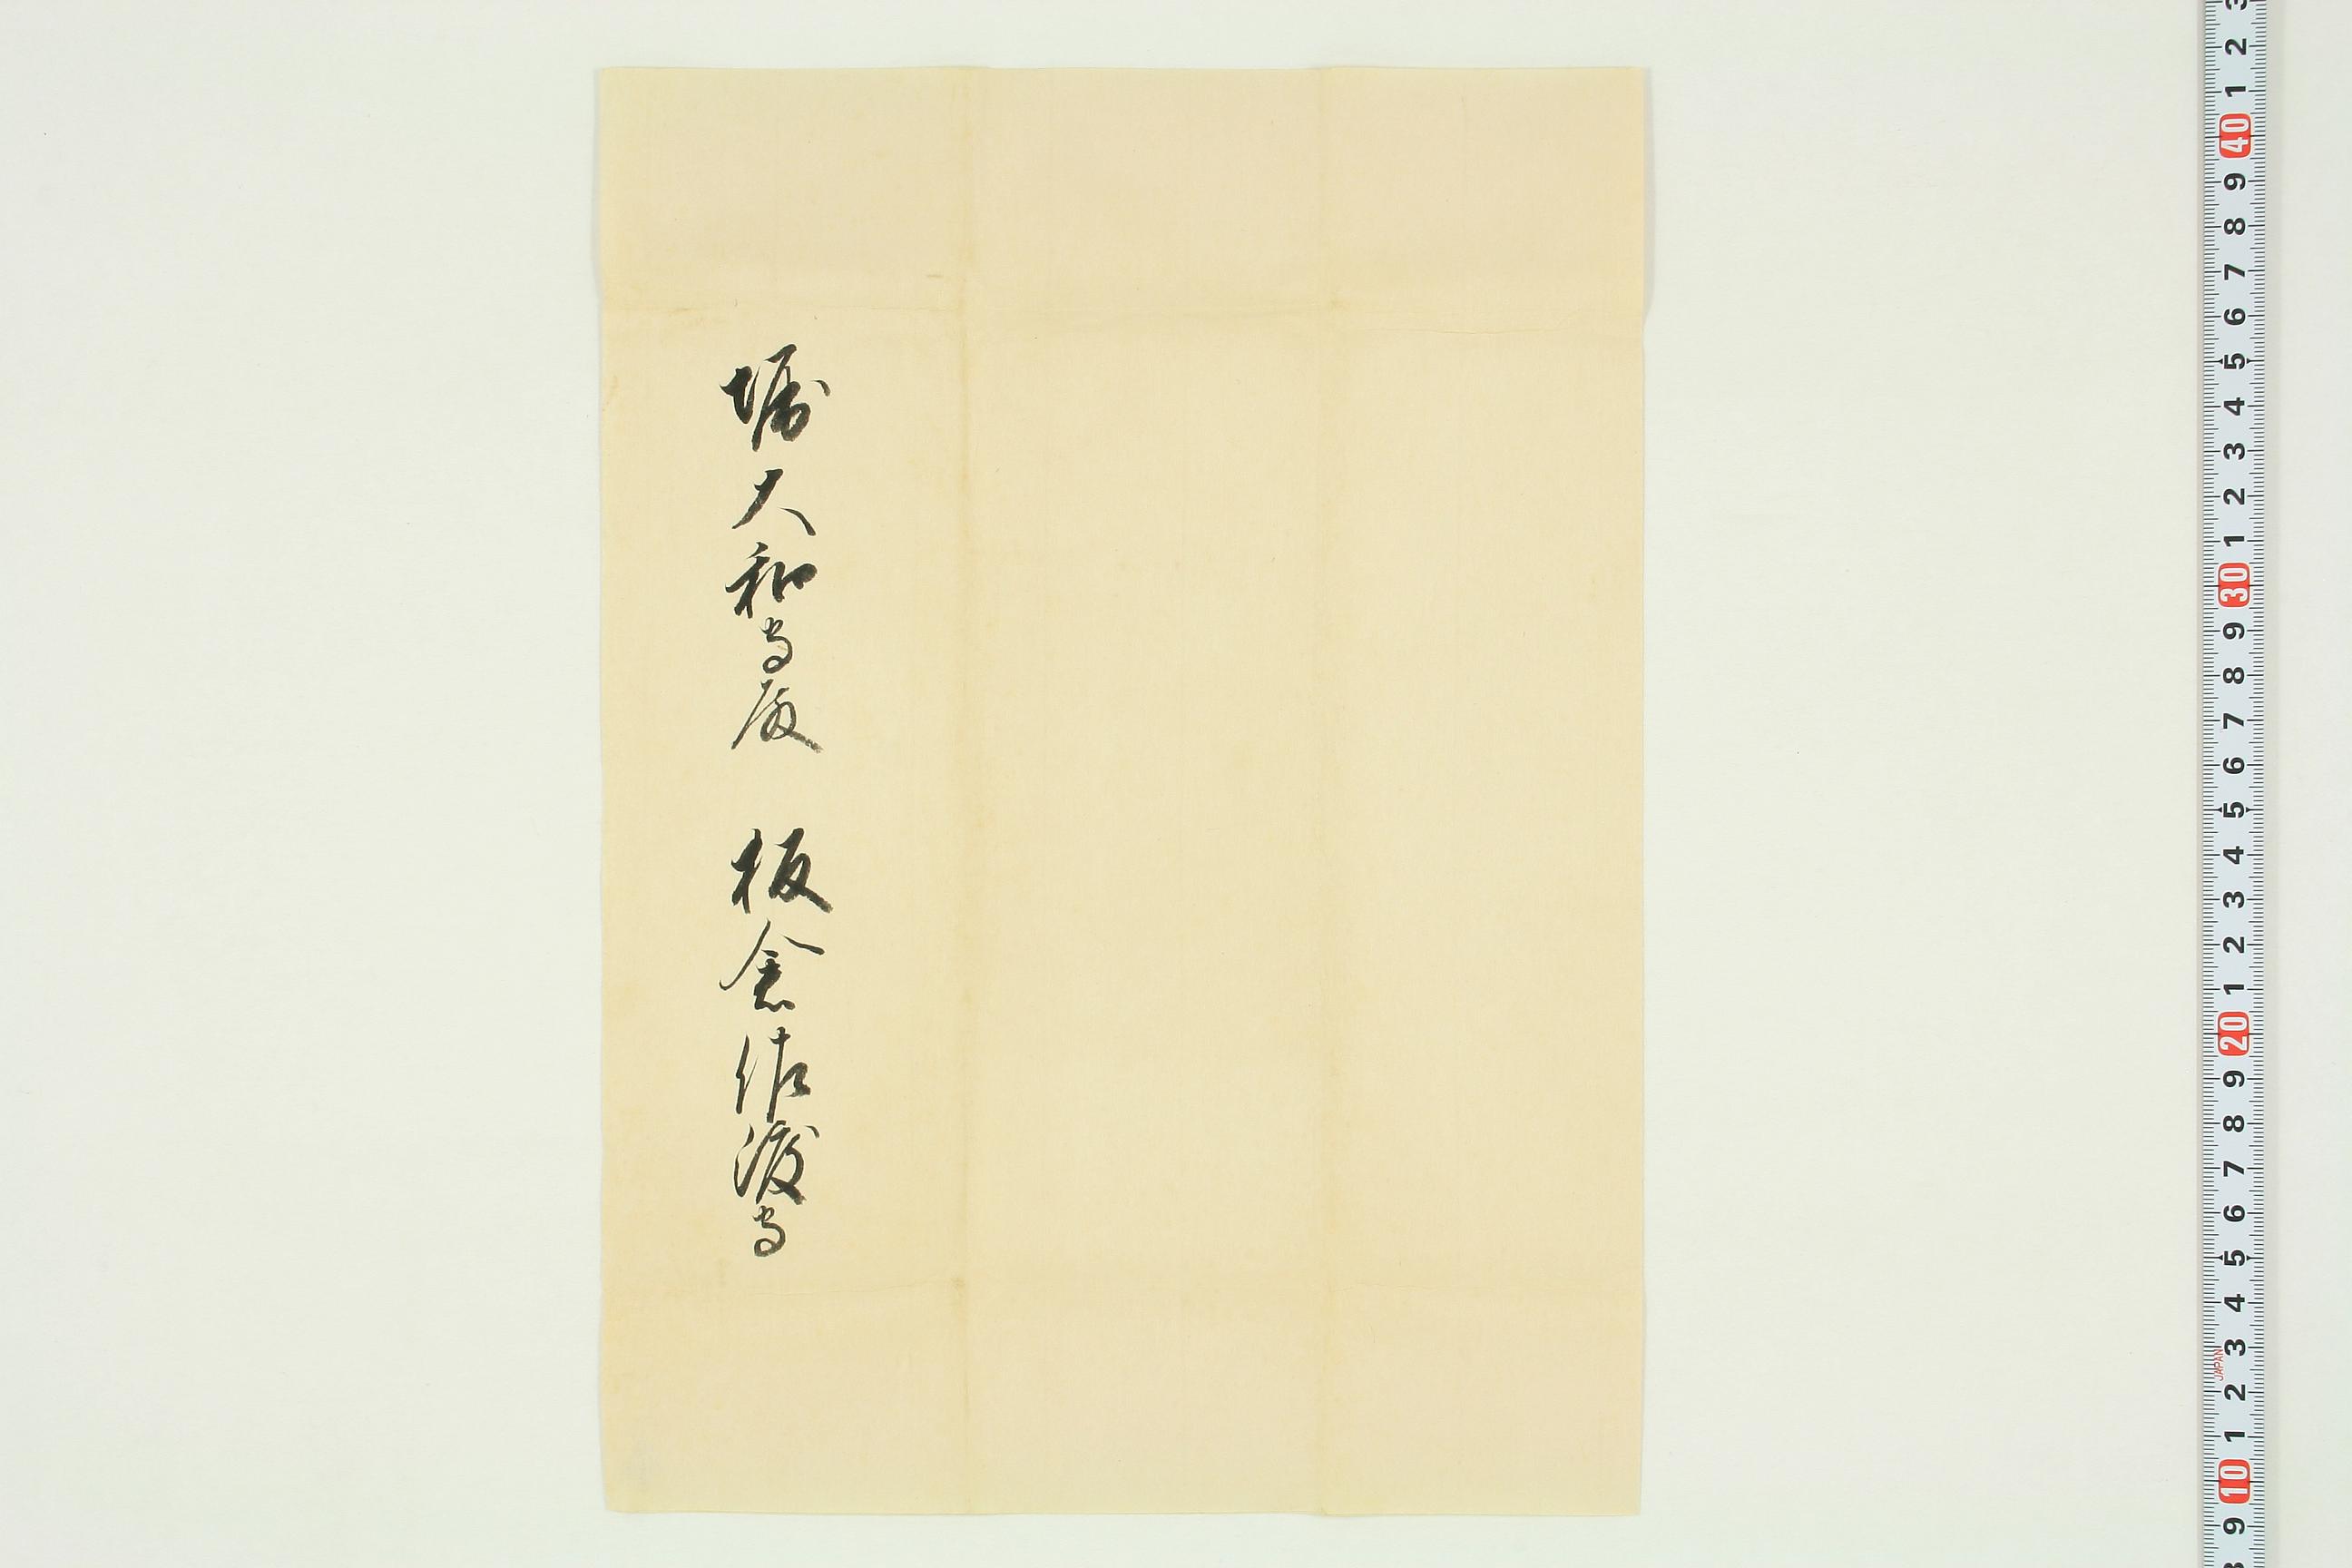 堀大和守殿 板倉佐渡守
3
2
1
40
9
8
7
6
5
4
3
2
1
30
9
8
7
6
5
4
3
2
1
20
9
8
7
6
5
4
3
JAPAN
2
1
10
9
8